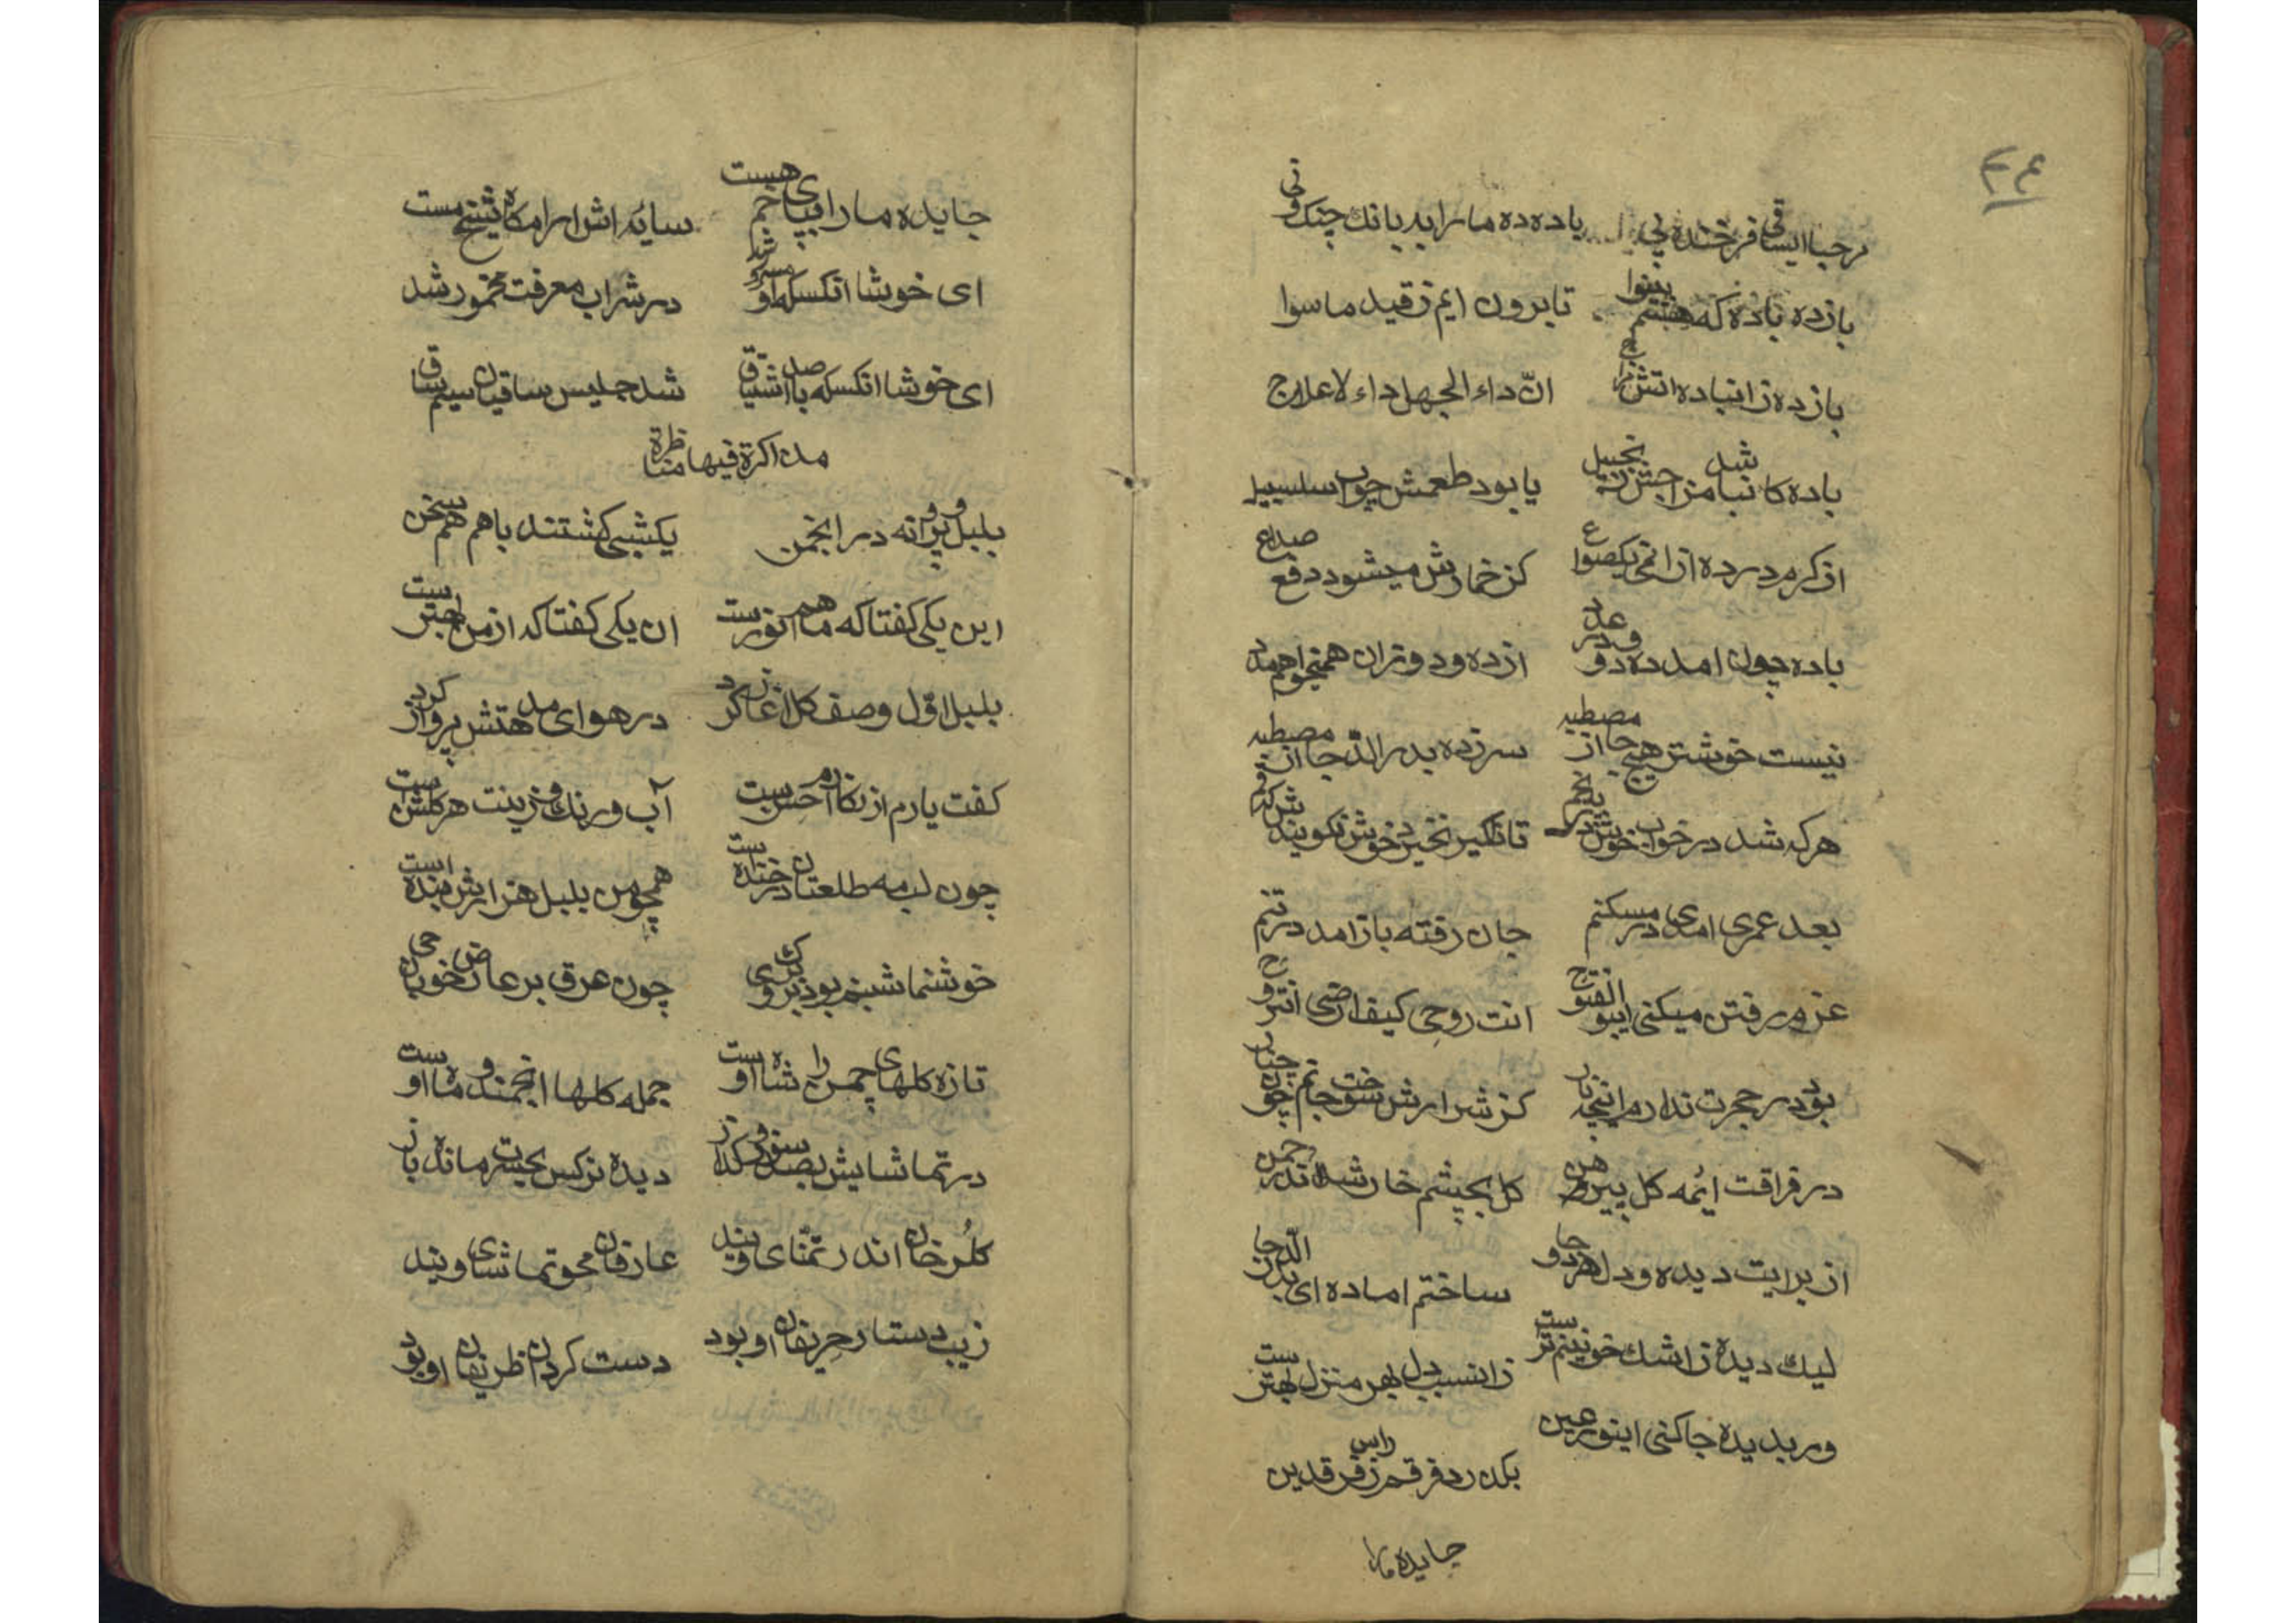 ٢٤
مرحبا ایساقی فرخنده پی باده ده ما را به بانك چنك و نی
بازده باده که هستم بینوا تا برون ایم ز قید ماسوا
بازده زانباده اتش مزاج انّ داء الجهل داء لا علاج
باده کانبا مزاجش زنجبیل شد یا بود طعمش چو اب سلسبیل
از کرم در ده از انمی یکصواع کز خمارش میشود دفع صداع
باده چون امد ده و دو در عدد از ده و دو تران همیخواهم مدد
نیست خوشتر هیچ جا از مصطبه سر زده بدر الدّجا از مصطبه
هر که شد در خواب خوش تانکیر نخیز خوش نکویندش که قم
بعد عمری امدی در مسکنم جان رفته باز امد در تنم
عزم رفتن میکنی ایبو الفتوح انت روحی کیف ارضی ان تروح
بود در حجرت ندارم اینجه نار کز شرارش سوخت جانم چون چنار
در فراقت ایمه کل پیرهن کل بچشم خار شد اندر چمن
از برایت دیده و دل هر دو جا ساختم اماده ای بدر الدّجا
لیك دیده ز اشك خونینم ترست زانسبب دل بهر منزل بهترست
ور بدیده جا کنی اینور عین بکذرد فرقم ز راس فرقدین
جایده ما را
جایده ما را بپای خم هست سایه اش ارامکاه شیخ مست
ای خوشا انکسکه او مسرور شد در شراب معرفت مخمور شد
ای خوشا انکسکه با صد اشتیاق شد جلیس ساقیان سیم ساق
مذاکرة فیها مناظرة
بلبل و پروانه در انجمن یکشبی کشتند با هم هم سخن
این یکی کفتا که ماهم انورست ان یکی کفتا که از من بهترست
بلبل اوّل وصف کل اغاز کرد در هوای مدحتش پرواز کرد
کفت یارم از نکارم احسن ست آب و رنك و زینت هر کلشن ست
چون لب مه طلعتان در خنده است همچو من بلبل هزارش بنده است
خوشنما شبنم بود بر روی چون عرق بر عارض خوبان حی
تازه کلهای چمن را شاه اوست جمله کلها انجمند و ماه اوست
در تماشایش بصد سوز و کداز دیده نرکس بحیرت مانده باز
کلرخان اندر تمنّای ویند عارفان محو تماشای ویند
زیب دستار حریفان او بود دست کردان ظریفان او بود